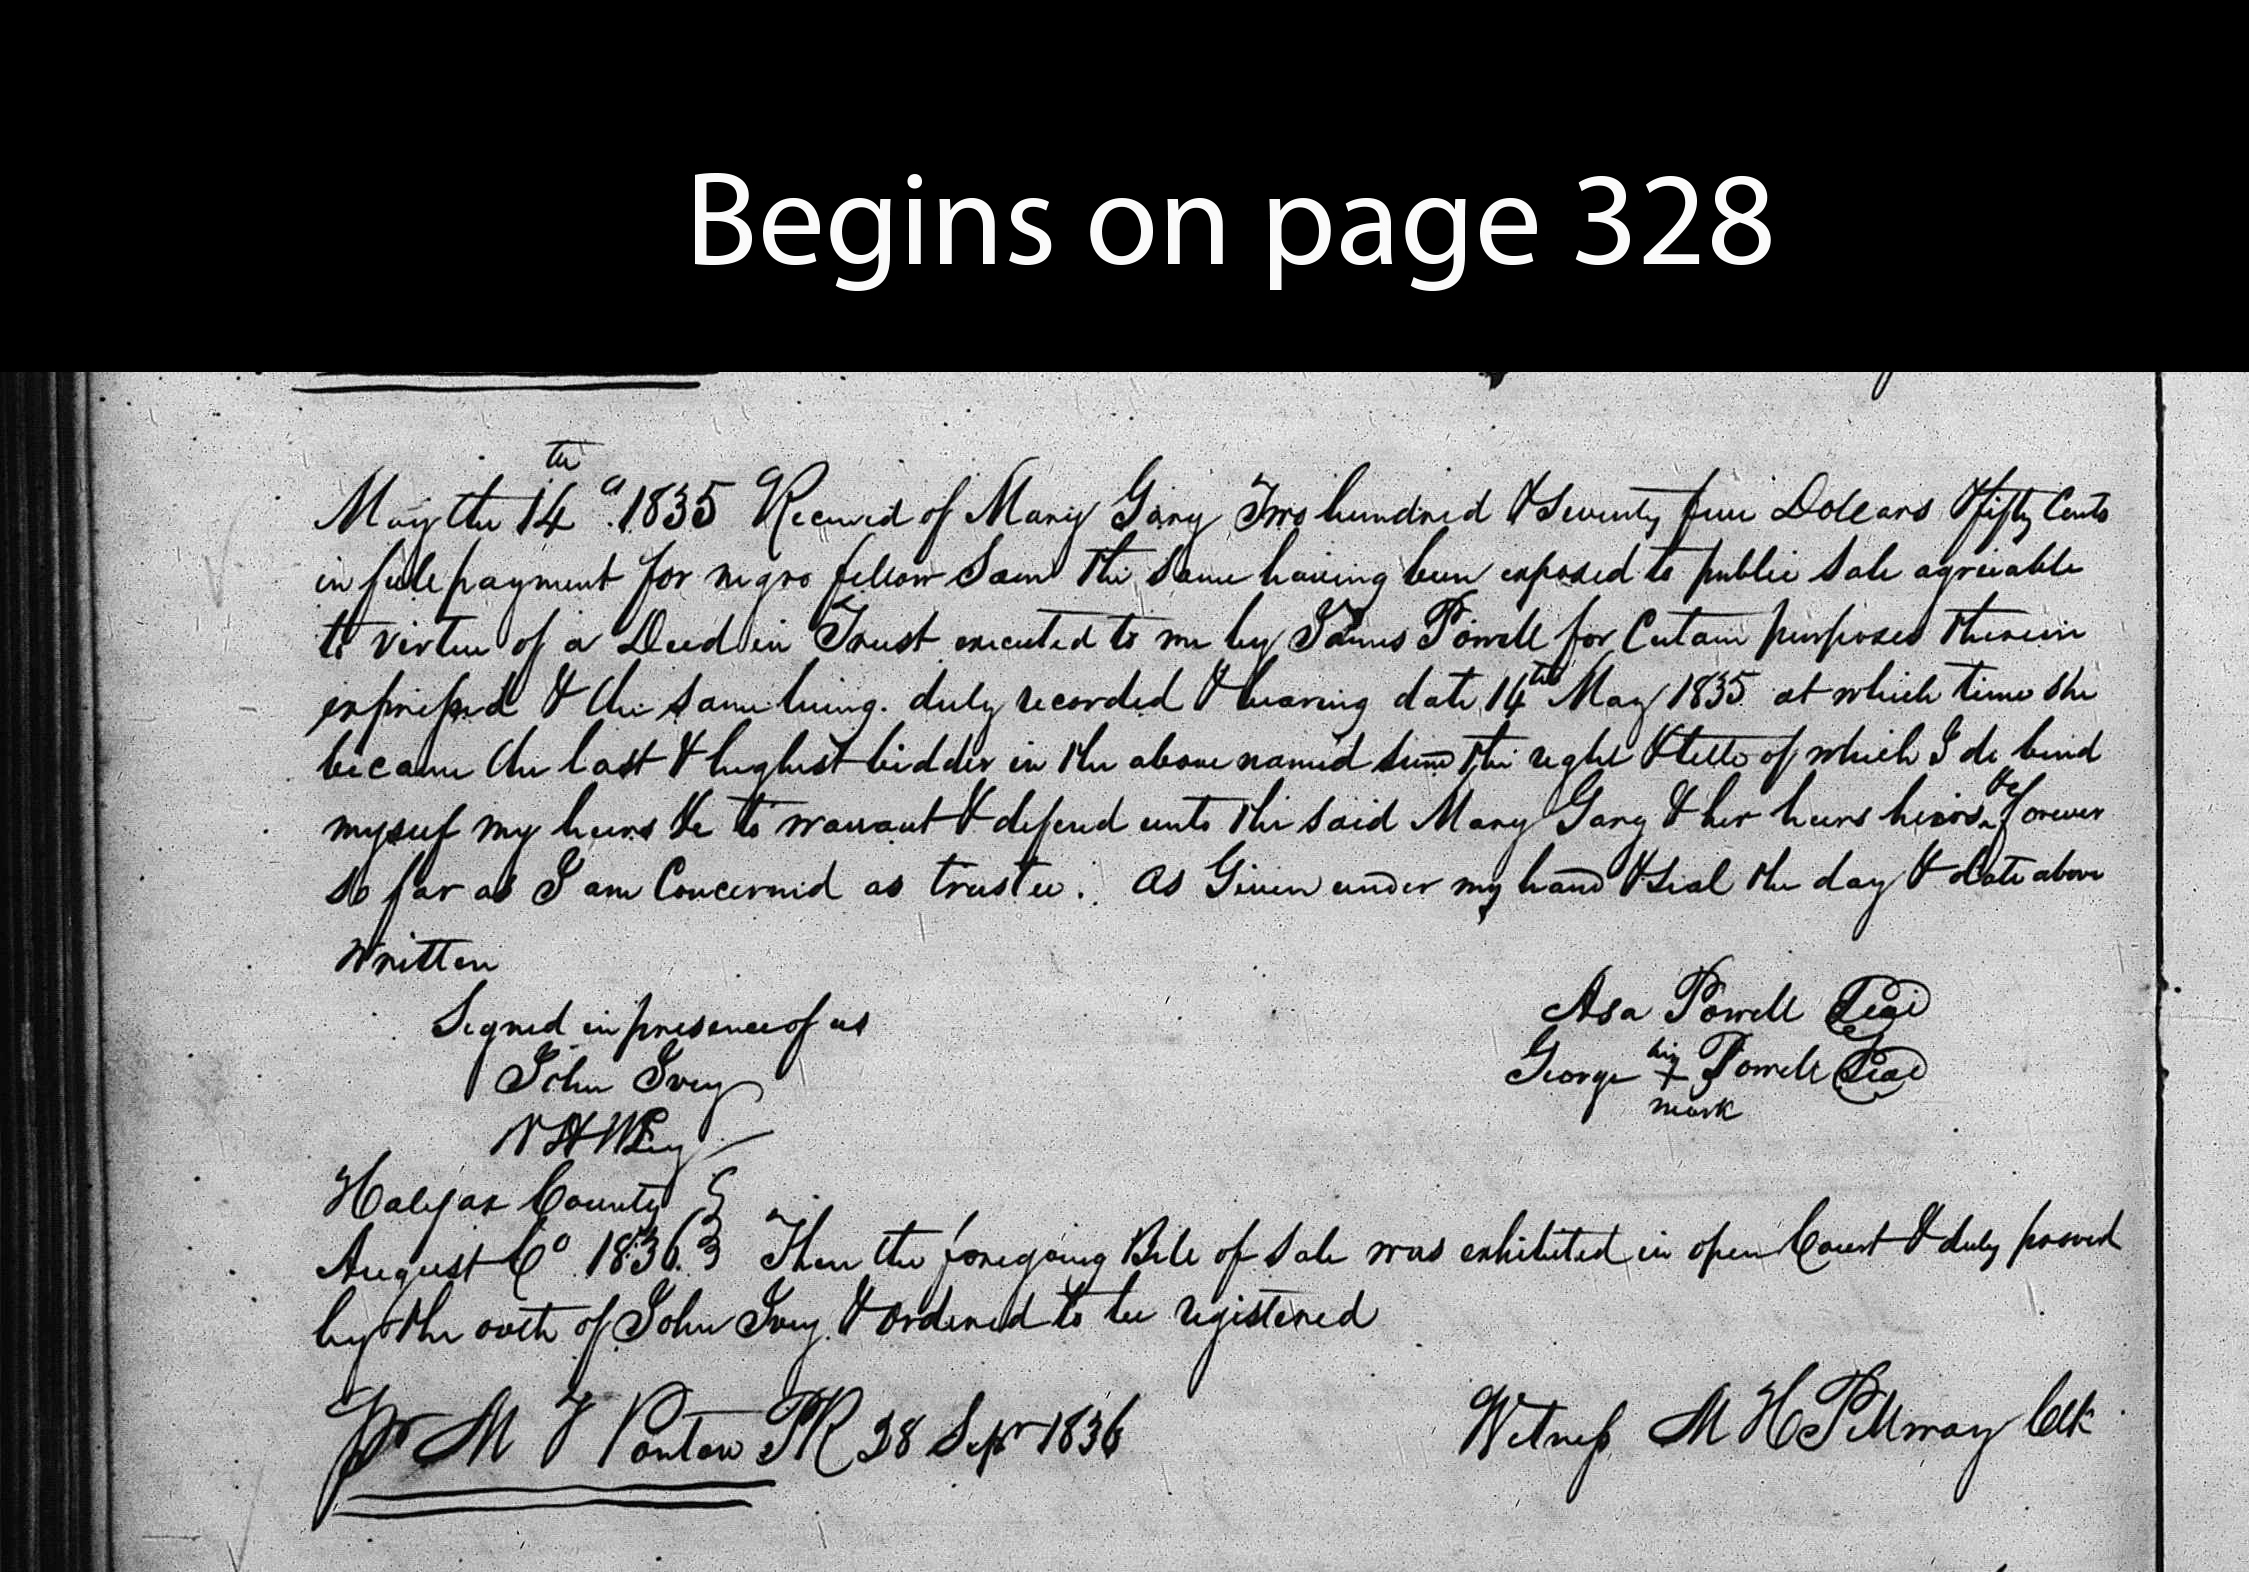 Begins on page 328
May the 14th a. 1835 Received of Mary Gary Two hundred & Seventy five Dollars & fifty Cents
in full payment for negro fellow Sam the same having been exposed to public sale agreeable
to virtue of a Deed in Trust executed to me by James Powell for Certain purposes therein
expressed & the same being duly recorded & bearing date 14th May 1835 at which time she
became the last & highest bidder in the above named sum the right & title of which I do bind
myself my heirs &c to warrant & defend unto the said Mary Gary & her heirs heirs &c forever
so far as I am Concerned as trustee. As Given under my hand & seal the day & date above
Written
Signed in presence of us
Asa Powell Seal
John Ivey
George his X mark Powell Seal
Halifax County
August Co 1836. Then the foregoing Bill of Sale was exhibited in open Court & duly proved
by the oath of John Ivey & ordered to be registered
Pr M F Ponton PR 28 Sepr 1836
Witness M H Pettway Clk